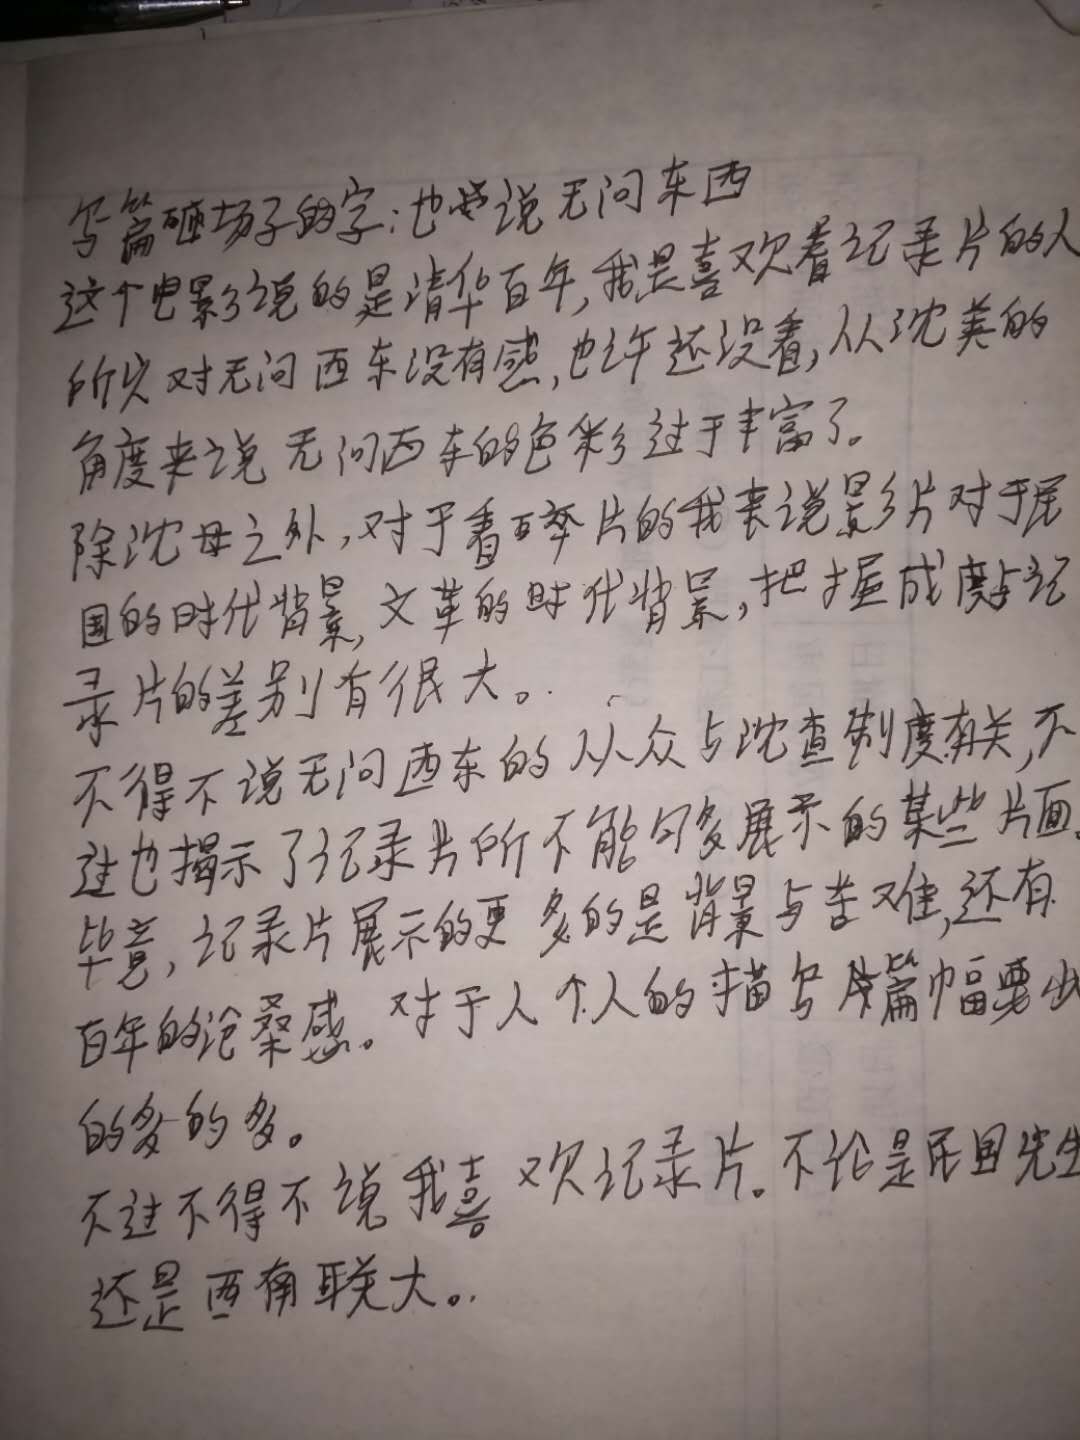 写篇砸场子的字：也要说无问东西
这个电影说的是清华百年，我是喜欢看记录片的人
所以对无问西东没有感，也许还没看，从沈美的
角度来说无问西东的色彩过于丰富了。
除沈母之外，对于看百年片的我来说影片对于民
国的时代背景，文革的时代背景，把握成度与记
录片的差别有很大。
不得不说无问西东的从众与沈查制度有关，不
过也揭示了记录片所不能够多展示的某些片面。
毕竟，记录片展示的更多的是背景与苦难，还有
百年的沧桑感。对于人个人的描写片篇幅要少
的多的多。
不过不得不说我喜欢记录片。不论是民国先生
还是西南联大。